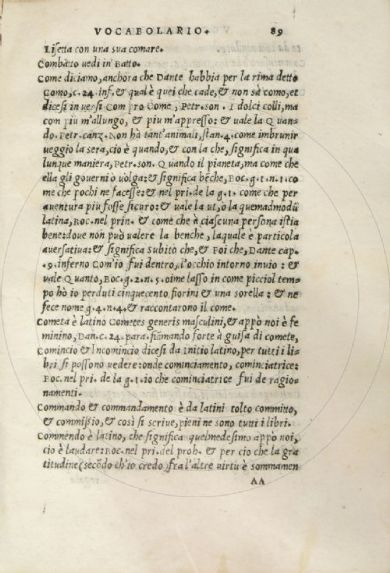 VOCABOLARIO. 89
Lisetta con una sua comare.
Combatto uedi in Batto.
Come diciamo, anchora che Dante habbia per la rima detto
Como, c. 24. inf. & qual è quei che cade, & non sà como, et
dicesi in uersi Com pro Come, Petr. son. I dolci colli, ma
com piu m'allungo, & piu m'appresso: & uale la Quan-
do. Petr. canz. Non hà tant'animali, stan. 4. come imbrunir
ueggio la sera, cio è quando, & con la che, significa in qua
lunque maniera, Petr. son. Quando il pianeta, ma come che
ella gli gouerni o uolga: & significa bẽche, Boc. g. 1. n. 1. co
me che pochi ne facesse: & nel pri. de la g. 1. come che per
auentura piu fosse sicuro: & uale la ut, o la quemadmodũ
latina, Boc. nel prin. & come che à ciascuna persona istia
bene: doue non può ualere la benche, laquale è particola
auersatiua: & significa Subito che, & Poi che, Dante cap.
9. inferno Com'io fui dentro, l'occhio intorno inuio: &
uale Quanto, Boc. g. 2. n. 5. oime lasso in come picciol tem-
po hò io perduti cinquecento fiorini & una sorella: & ne
fece nome g. 4. n. 4. & raccontarono il come.
Cometa è latino Cometes generis masculini, & appò noi è fe
minino, Dan. c. 24. para. fiamando forte à guisa di comete,
Comincio & Incomincio dicesi da Initio latino, per tutti i li-
bri si possono uedere: onde cominciamento, cominciatrice:
Boc. nel pri. de la g. 1. io che cominciatrice fui de ragio-
namenti.
Commando & commandamento è da latini tolto committo,
& commissio, & così si scriue, pieni ne sono tutti i libri.
Commendo è latino, che significa quelmedesimo appò noi,
cio è laudare: Boc. nel pri. del prob. & per cio che la gra
titudine (secõdo ch'io credo) fra l'altre uirtù è sommamen
AA